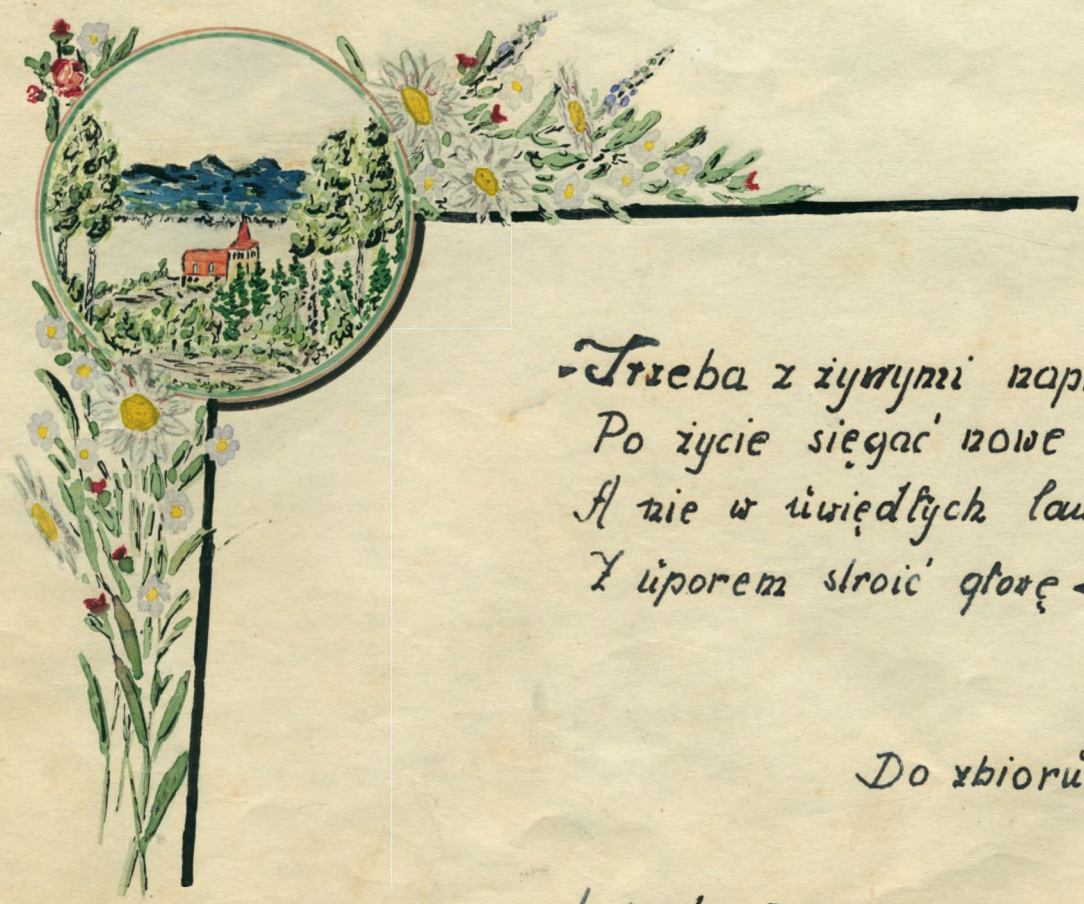 „Trzeba z żywymi nap
Po życie sięgać nowe
A nie w uwiędłych lau
Z uporem stroić głowę
Do zbioru